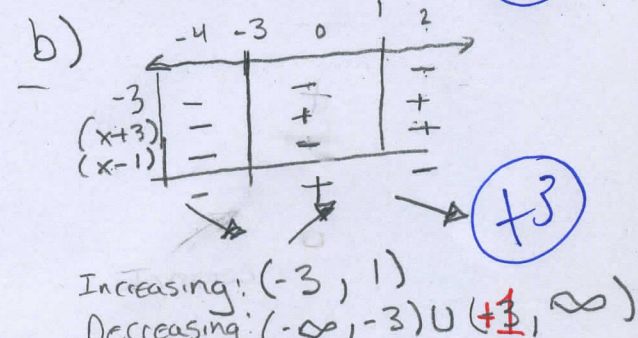 b)
-4 -3 0 1 2
-3 - - -
(x+3) - + +
(x-1) - - +
- + -
+3
Increasing: (-3, 1)
Decreasing: (-∞, -3) ∪ (+1, ∞)